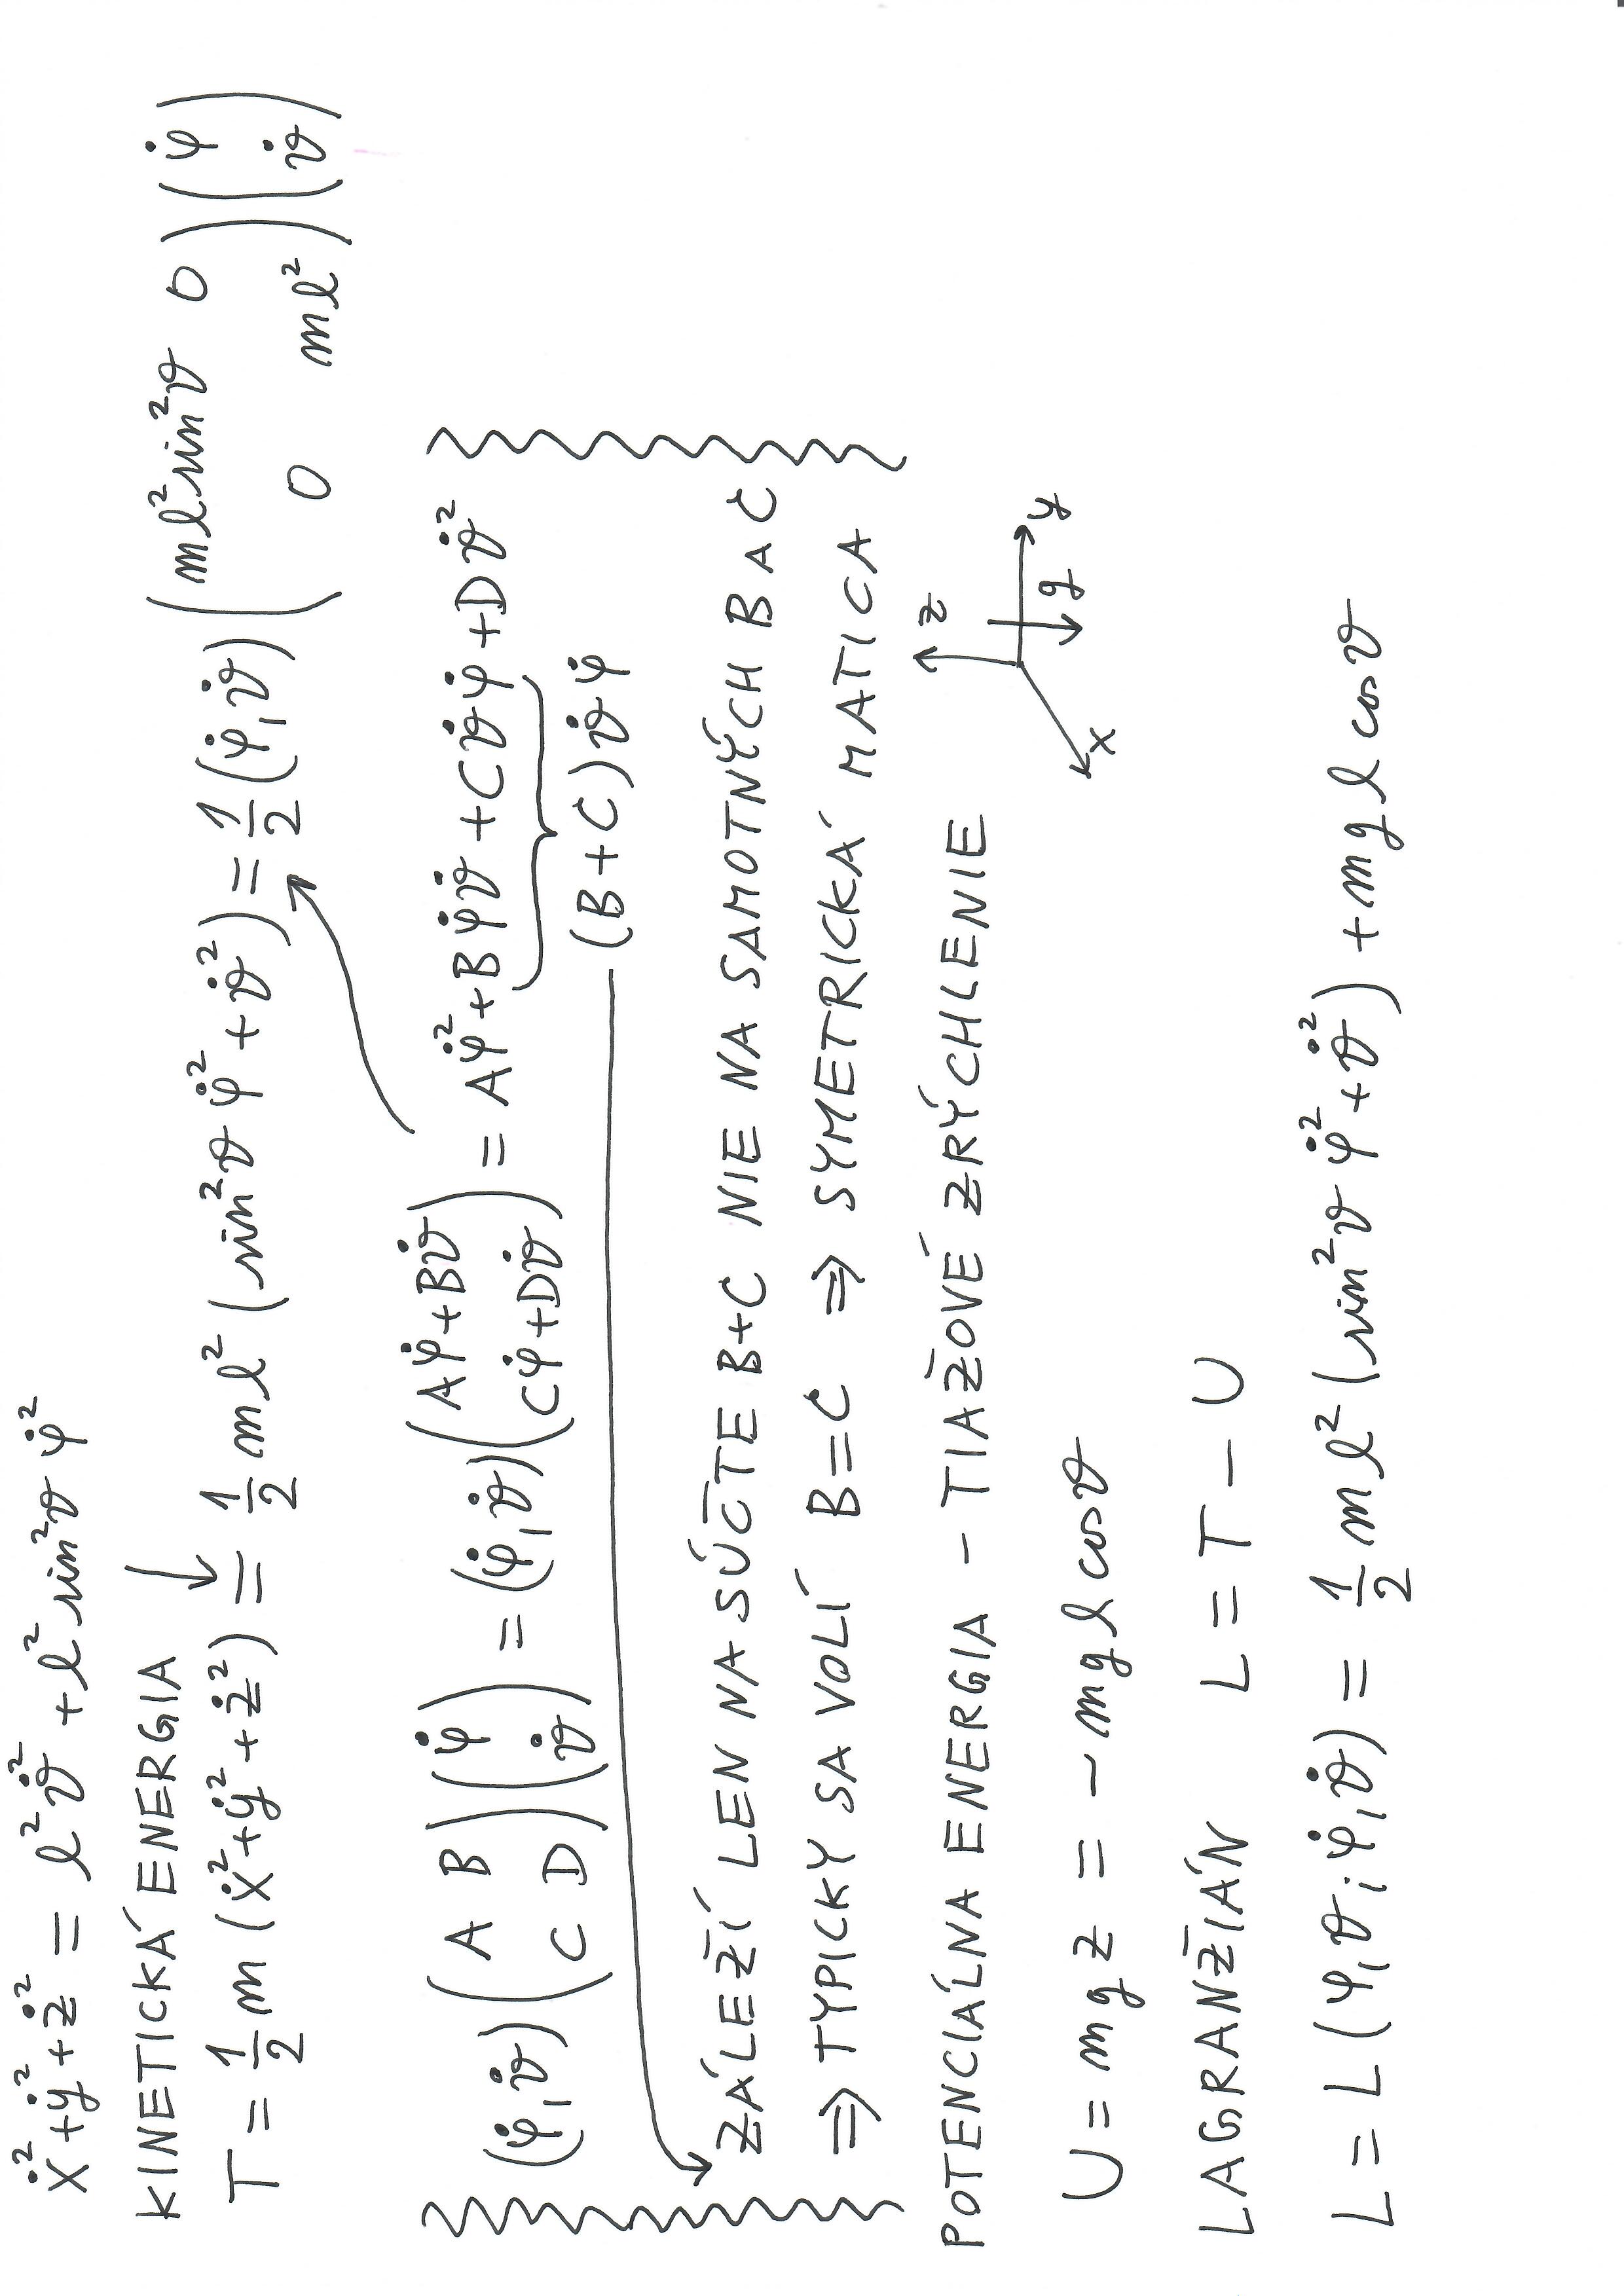 ẋ² + ẏ² + ż² = l²ϑ̇² + l² sin²ϑ φ̇²
KINETICKÁ ENERGIA ↓
T = 1/2 m (ẋ² + ẏ² + ż²) = 1/2 m l² (sin²ϑ φ̇² + ϑ̇²) = 1/2 (φ̇, ϑ̇) ( ml² sin²ϑ 0 ; 0 ml² ) ( φ̇ ; ϑ̇ )
(φ̇, ϑ̇) ( A B ; C D ) ( φ̇ ; ϑ̇ ) = (φ̇, ϑ̇) ( Aφ̇ + Bϑ̇ ; Cφ̇ + Dϑ̇ ) = Aφ̇² + Bφ̇ϑ̇ + Cϑ̇φ̇ + Dϑ̇²
(B + C) ϑ̇φ̇
ZÁLEŽÍ LEN NA SÚČTE B+C NIE NA SAMOTNÝCH B A C
⇒ TYPICKY SA VOLÍ B = C ⇒ SYMETRICKÁ MATICA
POTENCIÁLNA ENERGIA - TIAŽOVÉ ZRÝCHLENIE
z
y
x
g
U = mgz = - mgl cosϑ
LAGRANŽIÁN L = T - U
L = L (φ, ϑ; φ̇, ϑ̇) = 1/2 ml² (sin²ϑ φ̇² + ϑ̇²) + mgl cosϑ